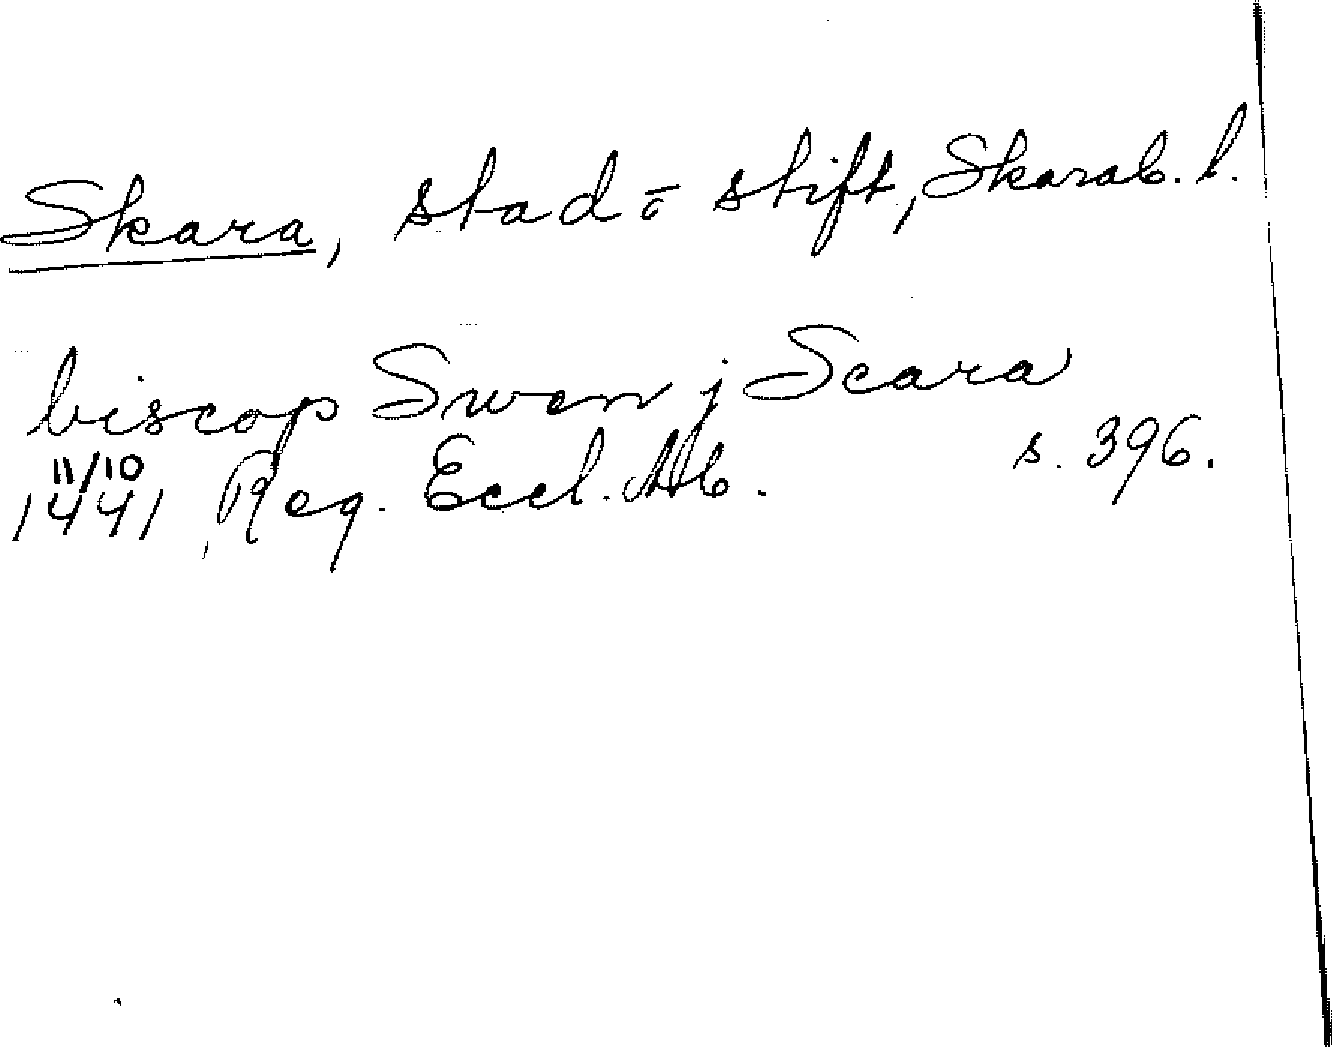 Skara, stad o stift, Skarab. l.
biscop Swen j Scara
11/10
1441 Reg. Eccl. Ab. s. 396.